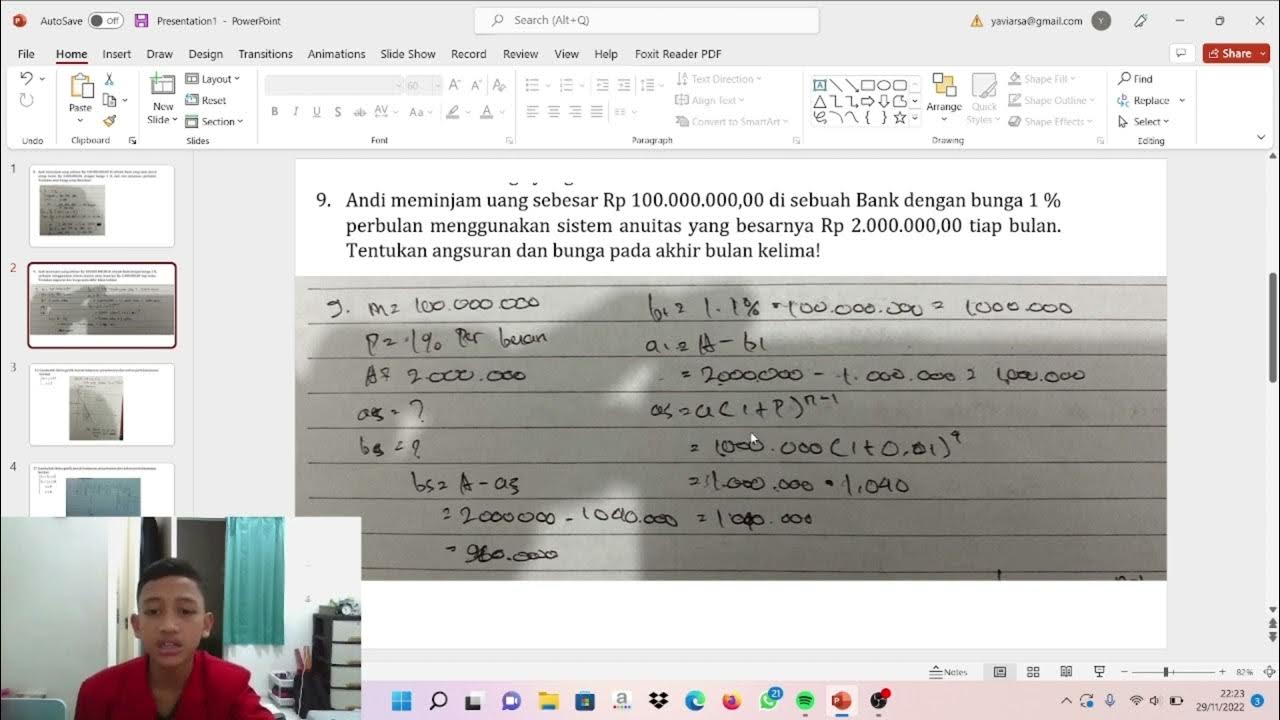 AutoSave Off Presentation1 - PowerPoint
Search (Alt+Q)
yaviarsa@gmail.com Y
File Home Insert Draw Design Transitions Animations Slide Show Record Review View Help Foxit Reader PDF
Share
Undo
Paste
Clipboard
New Slide
Layout
Reset
Section
Slides
B I U S
Font
Text Direction
Align Text
Convert to SmartArt
Paragraph
Arrange
Quick Styles
Shape Fill
Shape Outline
Shape Effects
Drawing
Find
Replace
Select
Editing
1
2
3
4
9. Andi meminjam uang sebesar Rp 100.000.000,00 di sebuah Bank dengan bunga 1 %
perbulan menggunakan sistem anuitas yang besarnya Rp 2.000.000,00 tiap bulan.
Tentukan angsuran dan bunga pada akhir bulan kelima!
9. M = 100 000 000
P = 1% Per bulan
a5 = ?
b5 = ?
b5 = A - a5
= 2000000 - 1040.000
= 960.000
b1 = 1. 1% • 100.000.000 = 1000.000
a1 = A - b1
a5 = a (1+P)n-1
= 1000.000 (1+0,01)
= 1.000.000 • 1,040
Notes
82%
21
22:23
29/11/2022
3